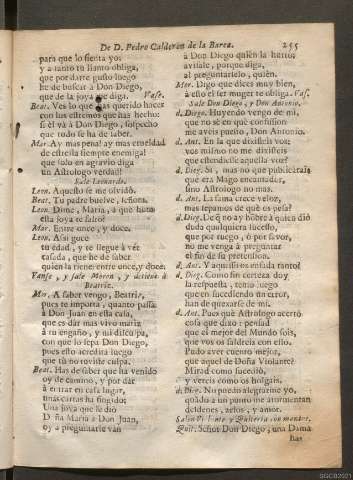 De D. Pedro Calderon de la Barca. 255
para que lo sienta yo:
y a tanto tu llanto obliga,
que por darte gusto luego
he de buscar à Don Diego,
que de la joya me diga. Vase.
Beat. Ves lo que has querido hacer
con los estremos que has hecho:
si él va à Don Diego, sospecho
que todo se ha de saber.
Mar. Ay mas pena! ay mas crueldad
de estrella siempre enemiga!
que solo en agravio diga
un Astrologo verdad!
Sale Leonardo.
Leon. Aquesto se me olvidò.
Beat. Tu padre buelve, señora.
Leon. Dime, Maria, à què hora
esta joya te faltò?
Mar. Entre once, y doce.
Leon. Assi goce
tu edad, y te llegue à vèr
casada, que he de saber
quien la tiene: entre once, y doce.
Vanse, y sale Moron, y detiene à
Beatriz.
Mor. A saber vengo, Beatriz,
pues te importa, quanto passa
à Don Juan en esta casa,
que es dar mas vivo matiz
à tu engaño, y mi disculpa,
con que lo sepa Don Diego,
pues esto acredita luego
que tù no tuviste culpa.
Beat. Has de saber que ha venido
oy de camino, y por dàr
à entrar en casa lugar,
unas cartas ha fingido:
Una joya que le diò
D. ña Maria à Don Juan,
oy à preguntarle vàn
à Don Diego quièn la hurtò:
avisale, porque diga,
al preguntarselo, quièn.
Mor. Digo que dices muy bien,
à esto el ser muger te obliga. Vas.
Sale Don Diego, y Don Antonio.
d. Diego. Huyendo vengo de mì,
que no sè en què confusion
me aveis puesto, Don Antonio.
d. Ant. En la que dixisteis vos:
vos mismo no me dixisteis
que estendiesse aquella voz?
d. Dieg. Sì, mas no que publicàrais
que era Mago encantador,
sino Astrologo no mas.
d. Ant. La fama crece veloz,
mas sepamos de què os pesa?
d. Dieg. De què no ay hombre à quien diò
duda qualquiera sucesso,
que por ruego, ò por favor,
no me venga à preguntar
el fin de su pretension.
d. Ant. Y aquesso os enfada tanto?
d. Dieg. Como sin certeza doy
la respuesta, temo luego
que en sucediendo un error,
han de quexarse de mì.
d. Ant. Pues què Astrologo acertò
cosa que dixo? pensad
que el mejor del Mundo sois,
que vos os saldreis con ello.
Pudo aver cuento mejor,
que aquel de Doña Violante?
Mirad como sucediò,
y vereis como os holgais.
d. Dieg. No puedo alegrarme yo,
quàdo à un punto me atormentan
desdenes, zelos, y amor.
Salen Violante, y Quiteria con mantos.
Quit. Señor Don Diego, una Dama
has
SGCB2021